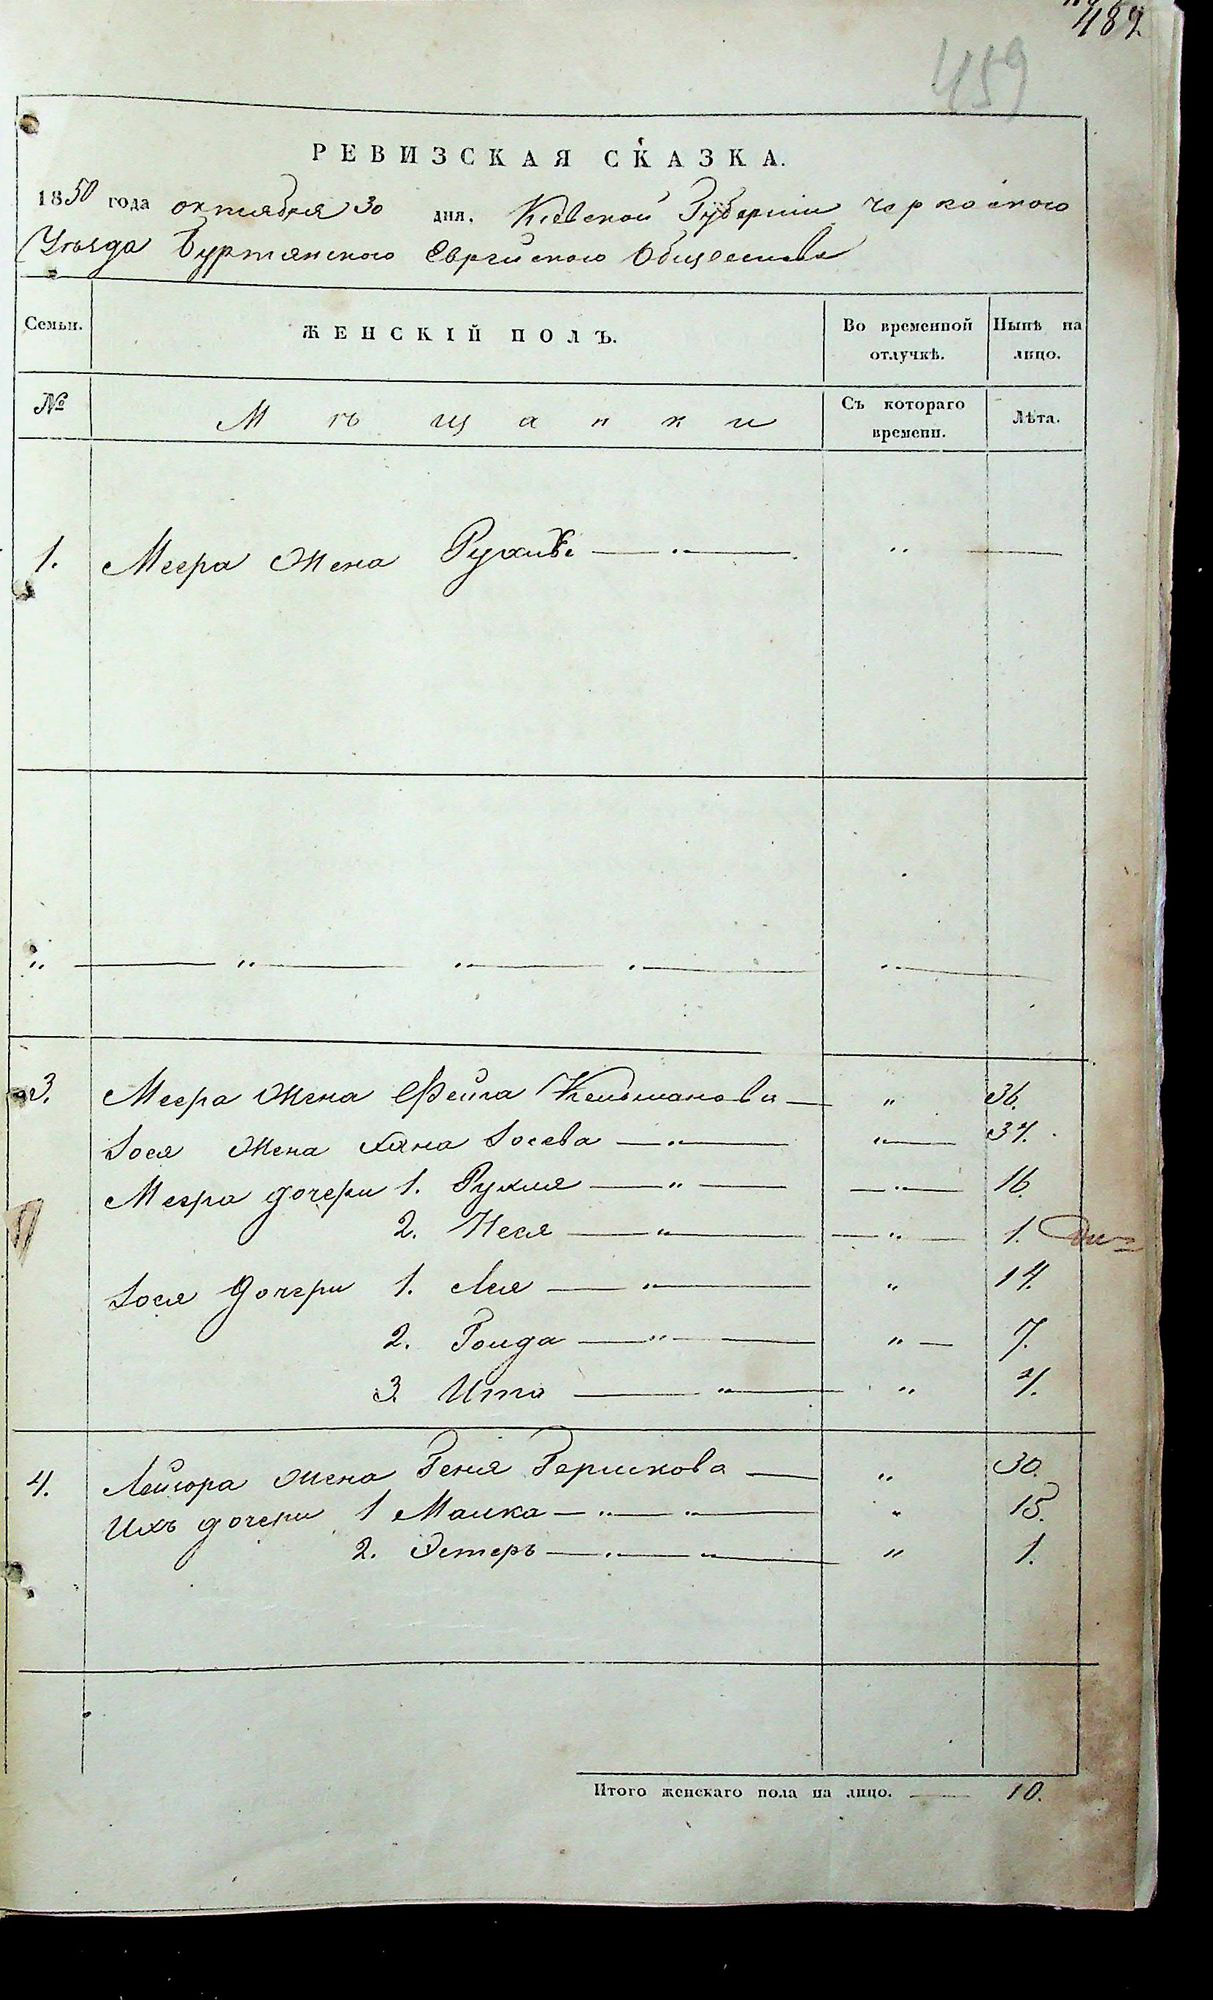 489.
459
РЕВИЗСКАЯ СКАЗКА.
1850 года октября 30 дня. Кіевской Губерніи Черкаского
Уѣзда Буртянского Еврейского Общества
Семьи. ЖЕНСКІЙ ПОЛЪ. Во временной отлучкѣ. Нынѣ на лицо.
№ Мѣщанки Съ котораго времени. Лѣта.
1. Меера Жена — " — " —
" — " — " — " — " —
3. Меера Жена Фейга — " 36.
Іося Жена Хана Іосева — " — " — 34.
Меера дочери 1. Рухля — " — " — 16.
2. Неся — " — " — 1.
Іося Дочери 1. Лея — " — " 14.
2. Голда — " — " — 7.
3. Ита — " — " 4.
4. Лейзора Жена Геня Гершкова — " 30.
Ихъ дочери 1 Малка — " — " — " 15.
2. Эстеръ — " — " — " 1.
Итого женскаго пола на лицо. — 10.